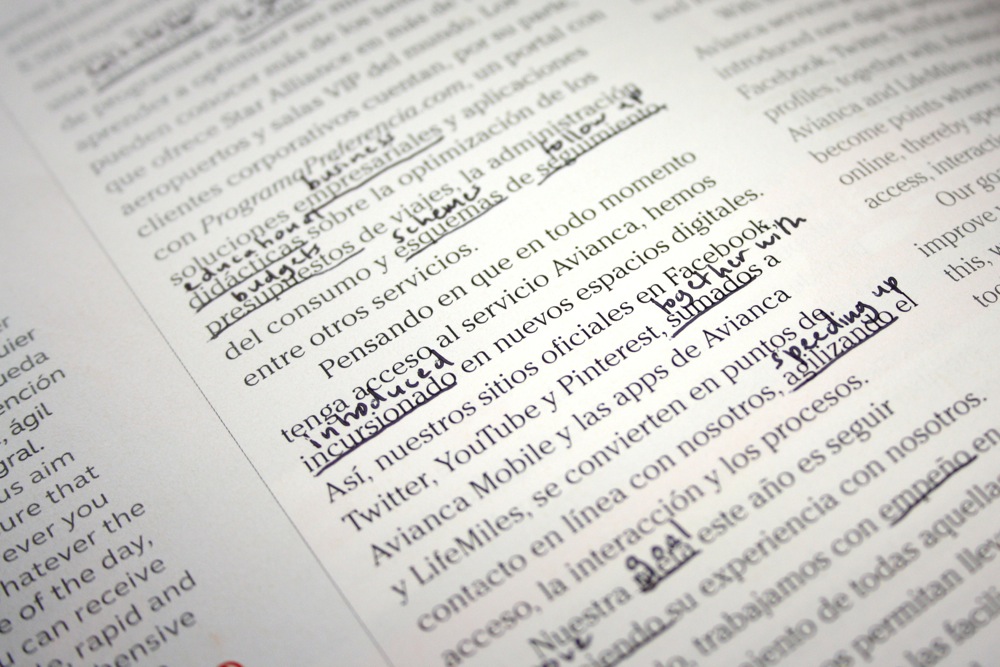 quier
ueda
ención
, ágil
gral.
us aim
ure that
ever you
hatever the
e of the day,
u can receive
e, rapid and
hensive
de programas de
aprender a optimizar sus
pueden conocer más de los
que ofrece Star Alliance en más de
aeropuertos y salas VIP del mundo. Los
clientes corporativos cuentan, por su parte,
con ProgramaPreferencia.com, un portal con
business
soluciones empresariales y aplicaciones
educa
didácticas sobre la optimización de los
budgets schemes follow up
presupuestos de viajes, la administración
del consumo y esquemas de seguimiento
entre otros servicios.
Pensando en que en todo momento
tenga acceso al servicio Avianca, hemos
introduced
incursionado en nuevos espacios digitales.
Así, nuestros sitios oficiales en Facebook,
together with
Twitter, YouTube y Pinterest, sumados a
Avianca Mobile y las apps de Avianca
y LifeMiles, se convierten en puntos de
speeding up
contacto en línea con nosotros, agilizando el
acceso, la interacción y los procesos.
goal
Nuestra meta este año es seguir
su experiencia con nosotros.
, trabajamos con empeño en
miento de todas aquellas
s permitan
las
With
Avianca
introduced new digital
Facebook, Twitter, YouTube
profiles, together with
Avianca and LifeMiles
become points where
online, thereby
access,
Our go
improve
this, w
too